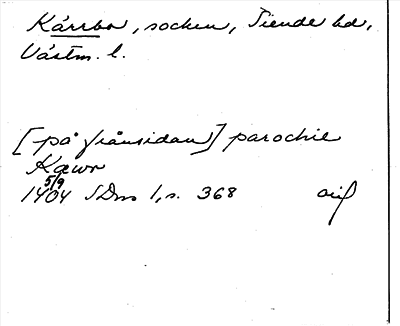 Kärrbo, socken, Siende hd,
Västm. l.
[på frånsidan] parochie
Kæwr
5/9
1404 SDns 1, s. 368 orig